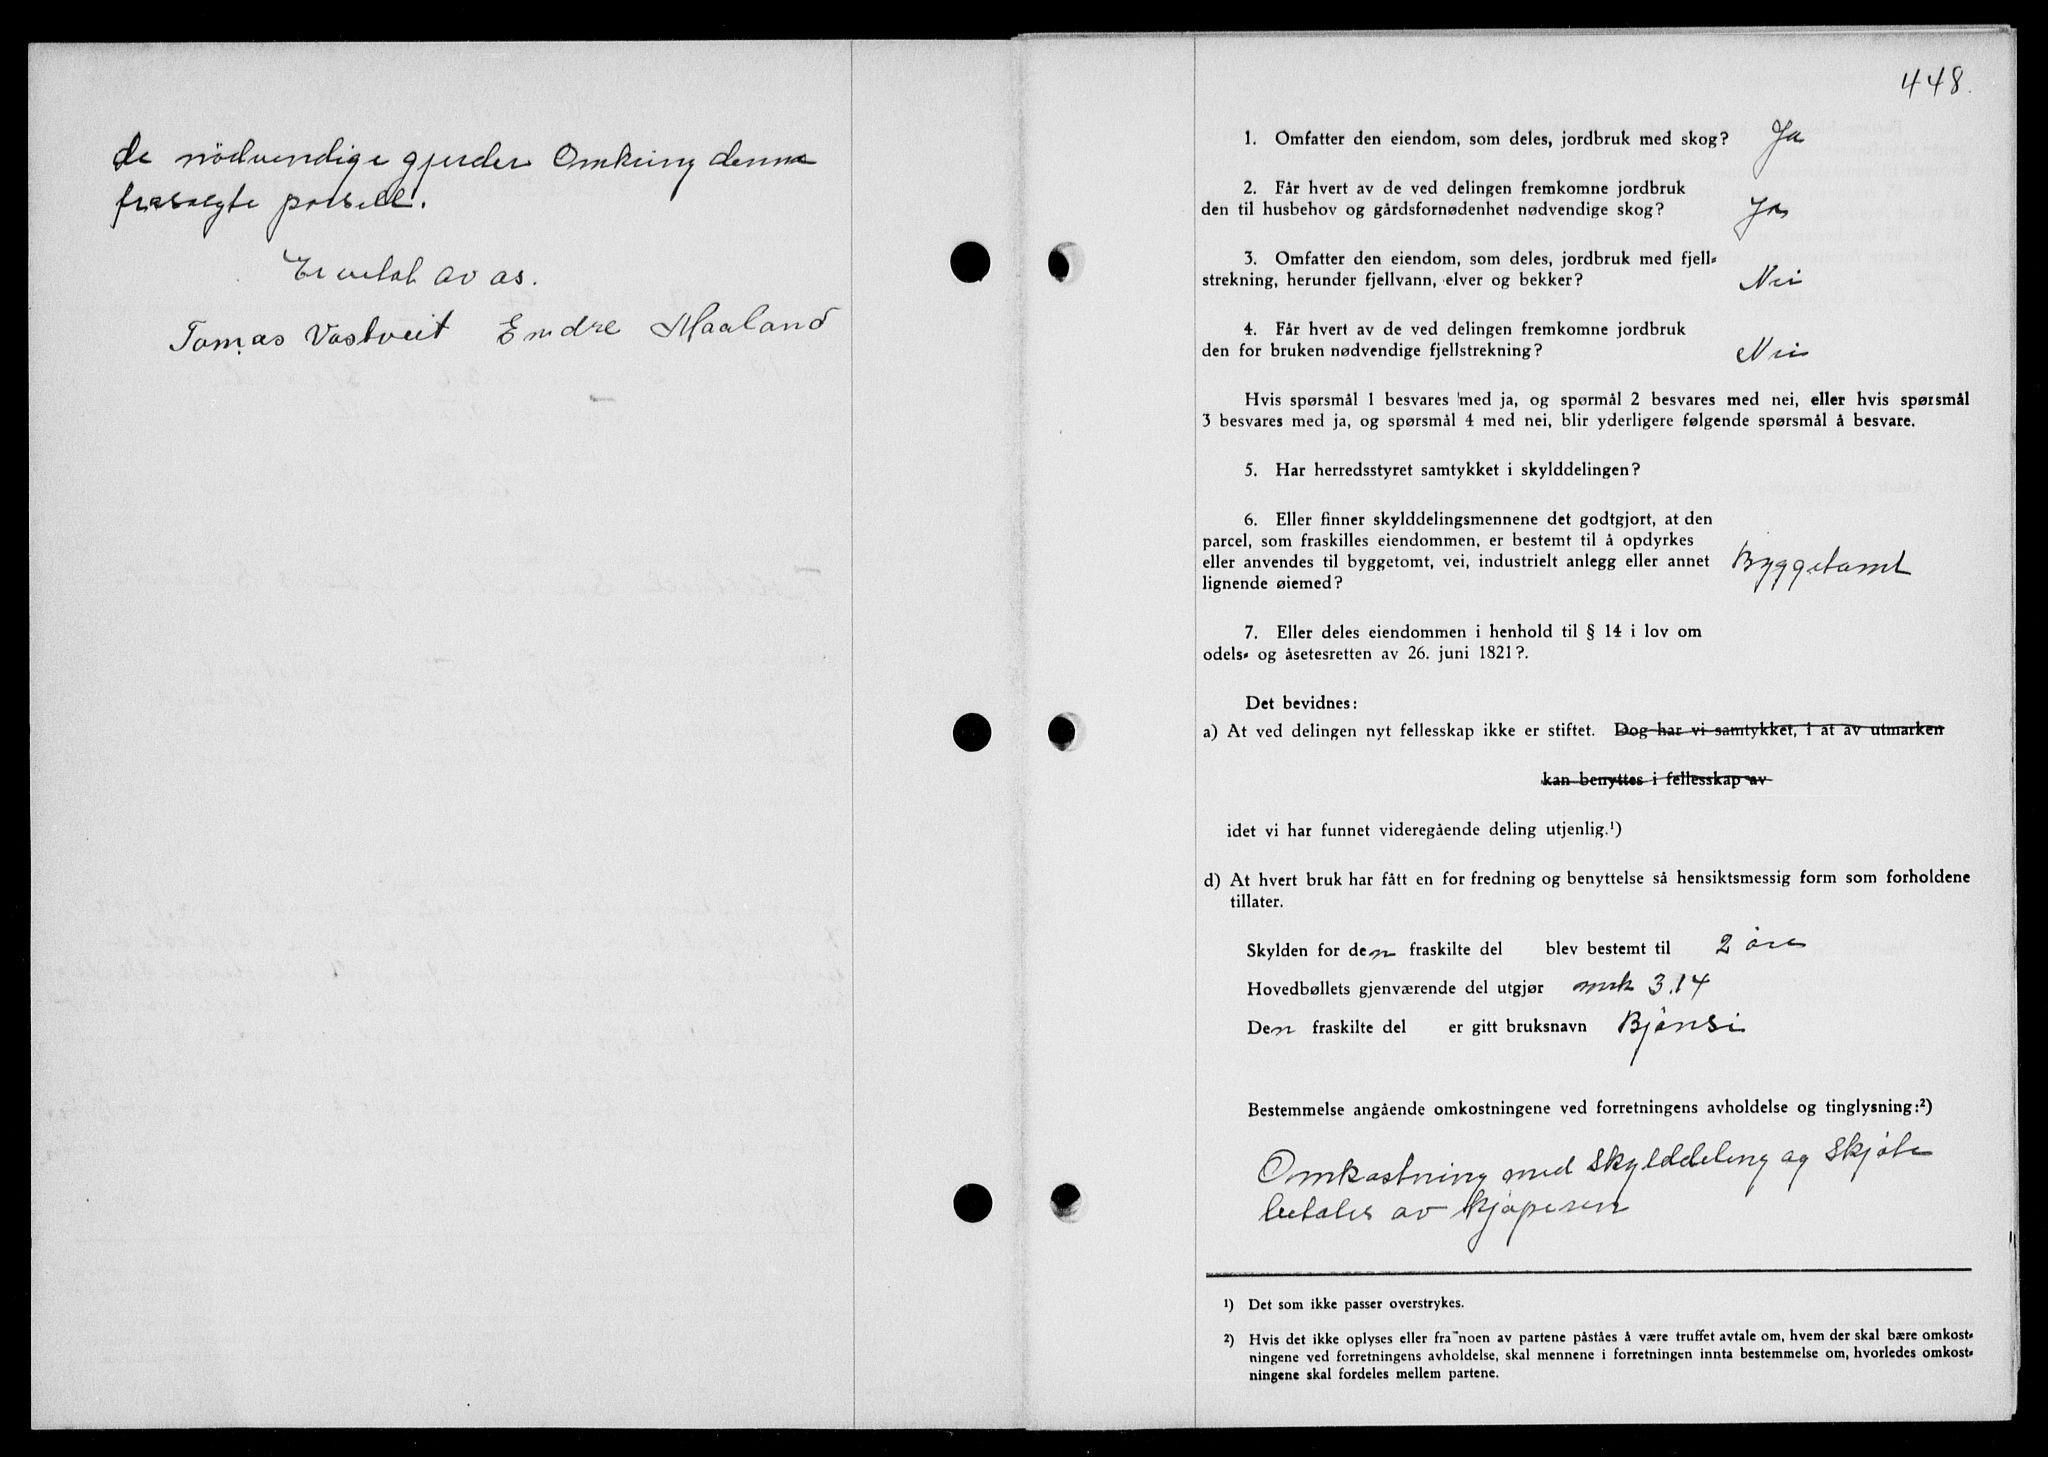 de nödvendige gjerder Omkring denne
frasolgte parsell.
Er vetat av as.
Tomas Vastveit Endre Maaland
448.
1. Omfatter den eiendom, som deles, jordbruk med skog? Ja
2. Får hvert av de ved delingen fremkomne jordbruk
den til husbehov og gårdsfornødenhet nødvendige skog? Ja
3. Omfatter den eiendom, som deles, jordbruk med fjell-
strekning, herunder fjellvann, elver og bekker? Nei
4. Får hvert av de ved delingen fremkomne jordbruk
den for bruken nødvendige fjellstrekning? Nei
Hvis spørsmål 1 besvares med ja, og spørmål 2 besvares med nei, eller hvis spørsmål
3 besvares med ja, og spørsmål 4 med nei, blir yderligere følgende spørsmål å besvare.
5. Har herredsstyret samtykket i skylddelingen?
6. Eller finner skylddelingsmennene det godtgjort, at den
parcel, som fraskilles eiendommen, er bestemt til å opdyrkes
eller anvendes til byggetomt, vei, industrielt anlegg eller annet Byggetomt
lignende øiemed?
7. Eller deles eiendommen i henhold til § 14 i lov om
odels- og åsetesretten av 26. juni 1821?.
Det bevidnes:
a) At ved delingen nyt fellesskap ikke er stiftet. Dog har vi samtykket, i at av utmarken
kan benyttes i fellesskap av
idet vi har funnet videregående deling utjenlig.¹)
d) At hvert bruk har fått en for fredning og benyttelse så hensiktsmessig form som forholdene
tillater.
Skylden for den fraskilte del blev bestemt til 2 øre
Hovedbøllets gjenværende del utgjør mrk 3.14
Den fraskilte del er gitt bruksnavn Bjönsi
Bestemmelse angående omkostningene ved forretningens avholdelse og tinglysning:²)
Omkostning med Skylddeling og Skjöte
betales av kjöperen
¹) Det som ikke passer overstrykes.
²) Hvis det ikke oplyses eller fra noen av partene påståes å være truffet avtale om, hvem der skal bære omkost-
ningene ved forretningens avholdelse, skal mennene i forretningen innta bestemmelse om, hvorledes omkost-
ningene skal fordeles mellem partene.